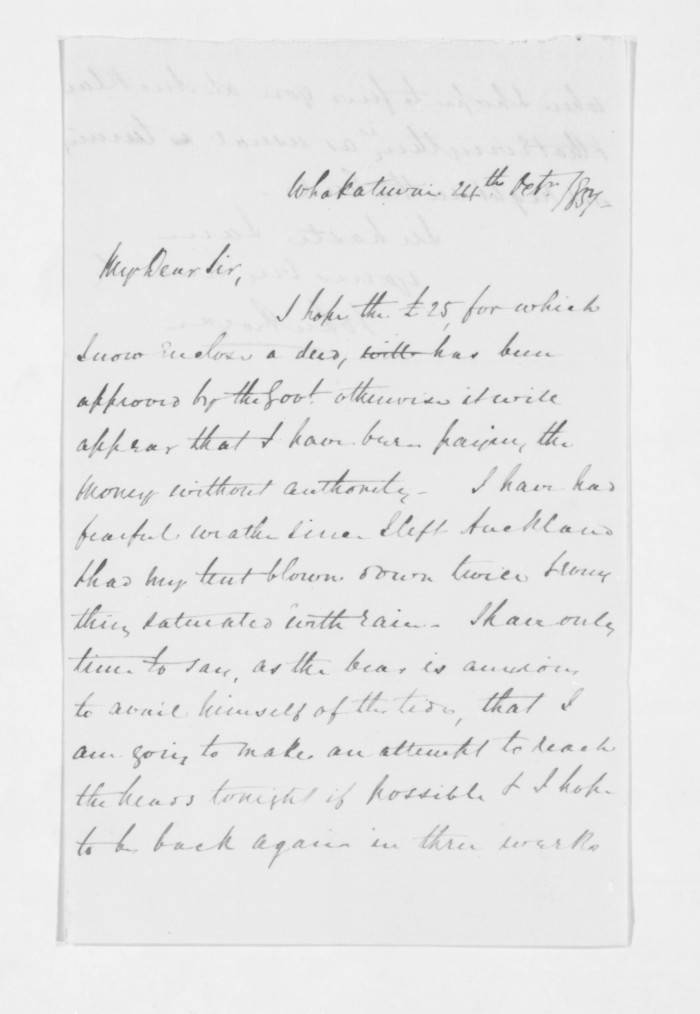 Whakatiwai 24th Octr. /57-
My Dear Sir,
I hope the £25, for which
I now enclose a deed, will has been
approved by the Govt. otherwise it will
appear that I have been paying the
money without authority - I have had
fearful weather since I left Auckland
& had my tent blown down twice & every
thing saturated with rain - I have only
time to say, as the bearer is anxious
to avail himself of the tide, that I
am going to make an attempt to reach
the heads tonight if possible & I hope
to be back again in three weeks